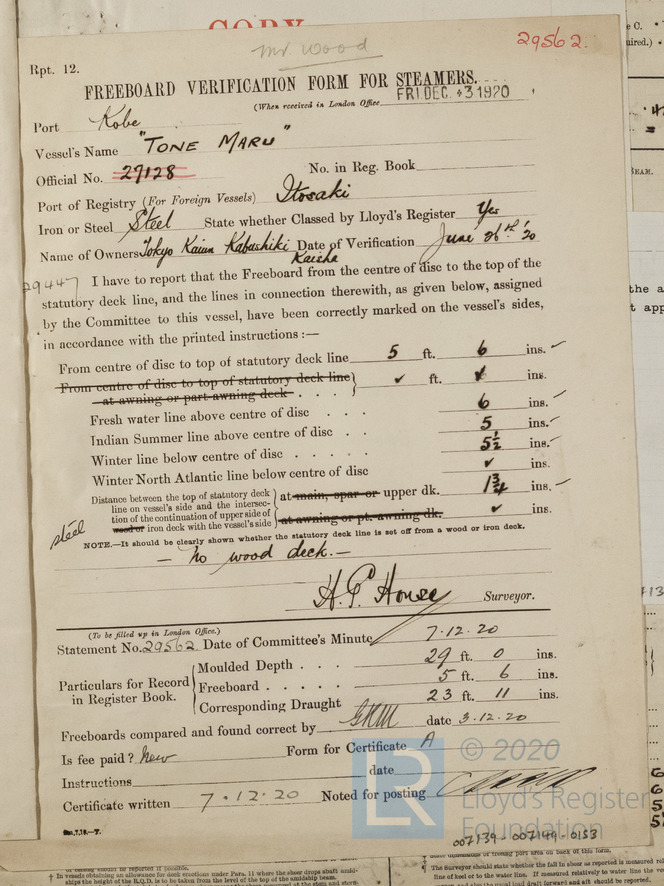 COPY
Mr. Wood
29562.
Rpt. 12.
FREEBOARD VERIFICATION FORM FOR STEAMERS.
(When received in London Office FRI DEC. 3 1920
Port Kobe
Vessel's Name "TONE MARU"
Official No. 27128 No. in Reg. Book
Port of Registry (For Foreign Vessels) Itosaki
Iron or Steel Steel State whether Classed by Lloyd's Register Yes
Name of Owners Tokyo Kaiun Kabushiki Kaisha Date of Verification June 26th '20
29447 I have to report that the Freeboard from the centre of disc to the top of the
statutory deck line, and the lines in connection therewith, as given below, assigned
by the Committee to this vessel, have been correctly marked on the vessel's sides,
in accordance with the printed instructions :—
From centre of disc to top of statutory deck line 5 ft. 6 ins. ✓
From centre of disc to top of statutory deck line
at awning or part awning deck . . . } ✓ ft. ✓ ins.
Fresh water line above centre of disc . . . 6 ins. ✓
Indian Summer line above centre of disc . . 5 ins. ✓
Winter line below centre of disc . . . . . 5½ ins. ✓
Winter North Atlantic line below centre of disc ✓ ins.
Distance between the top of statutory deck
line on vessel's side and the intersec- at main, spar or upper dk. 1¾ ins. ✓
tion of the continuation of upper side of
steel wood or iron deck with the vessel's side at awning or pt. awning dk. ✓ ins.
NOTE.—It should be clearly shown whether the statutory deck line is set off from a wood or iron deck.
— No wood deck. —
H. P. House Surveyor.
(To be filled up in London Office.)
Statement No. 29562 Date of Committee's Minute 7.12.20
Particulars for Record in Register Book.
Moulded Depth . . . 29 ft. 0 ins.
Freeboard . . . . . 5 ft. 6 ins.
Corresponding Draught 23 ft. 11 ins.
Freeboards compared and found correct by date 3.12.20
Is fee paid? New Form for Certificate A
Instructions date
Certificate written 7.12.20 Noted for posting
© 2020
LR
Lloyd's Register
Foundation
007139-007149-0153